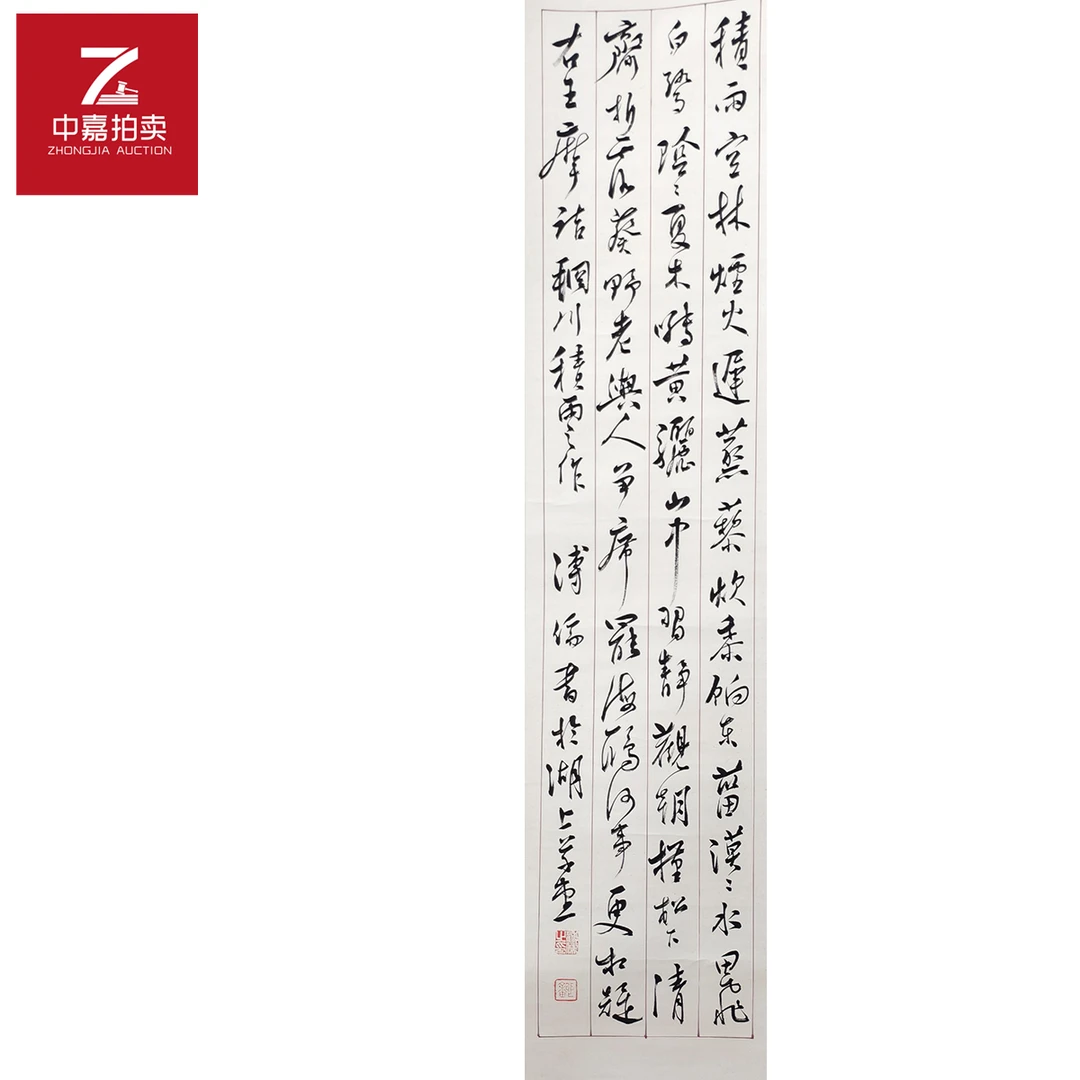 中嘉拍卖
ZHONGJIA AUCTION
積雨空林煙火遲蒸藜炊黍餉東菑漠々水田飛
白鷺陰々夏木囀黃鸝山中習靜觀朝槿松下清
齋折露葵野老與人爭席罷海鷗何事更相疑
右王摩詰輞川積雨之作 溥儒書於湖上草堂